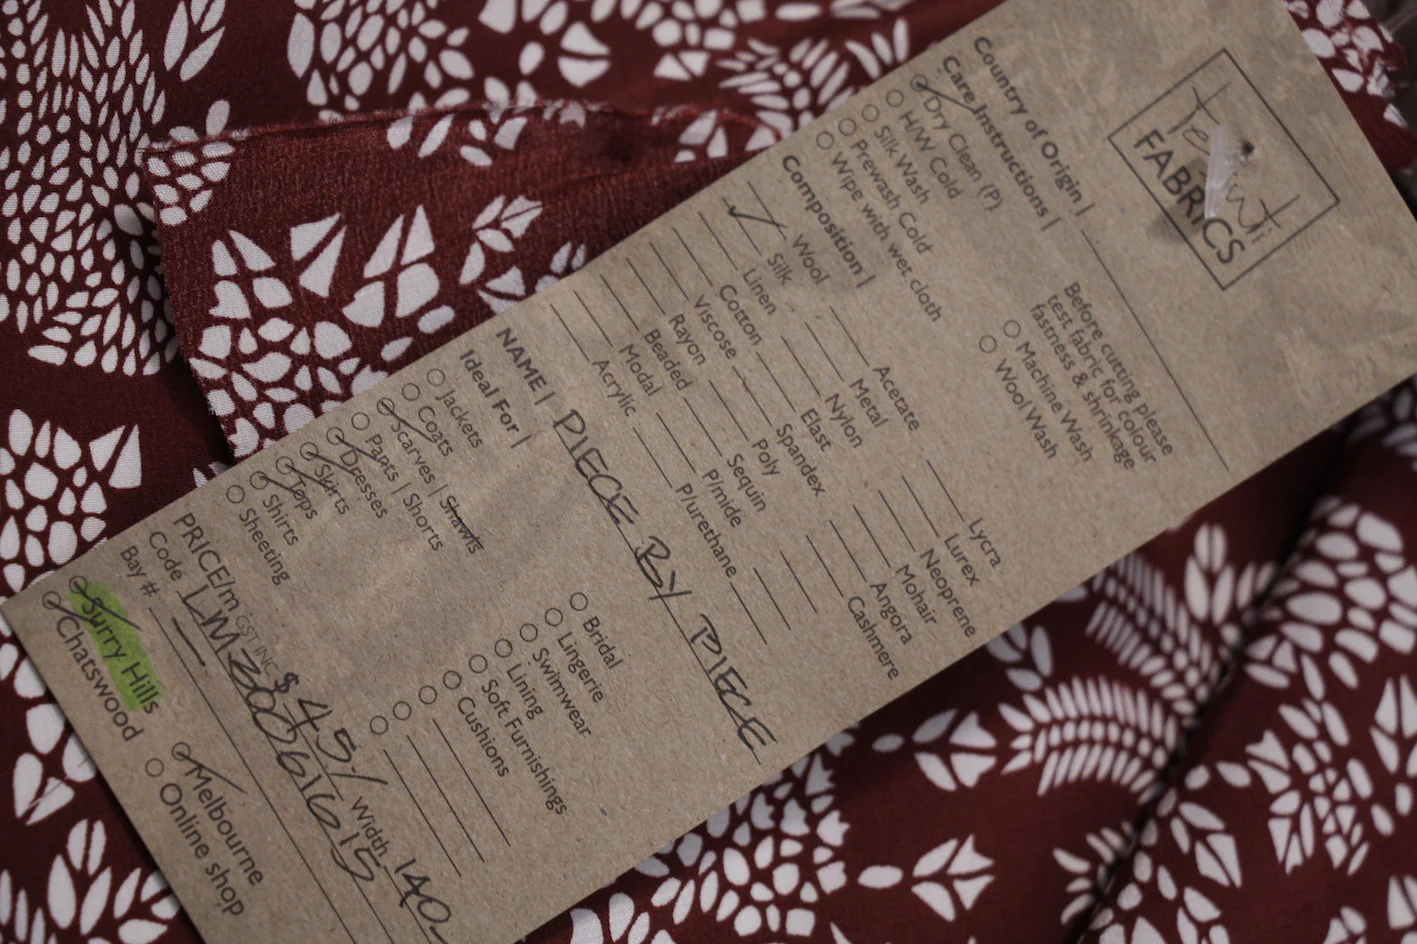 Tessuti
FABRICS
Country of Origin |
Care Instructions |
Dry Clean (P)
H/W Cold
Silk Wash
Prewash Cold
Wipe with wet cloth
Before cutting please
test fabric for colour
fastness & shrinkage
Machine Wash
Wool Wash
Composition |
Wool
Silk
Linen
Cotton
Viscose
Rayon
Beaded
Modal
Acrylic
Acetate
Metal
Nylon
Elast
Spandex
Poly
Sequin
P/mide
P/urethane
Lycra
Lurex
Neoprene
Mohair
Angora
Cashmere
NAME | PIECE BY PIECE
Ideal For |
Jackets
Coats
Scarves | Shawls
Pants | Shorts
Dresses
Skirts
Tops
Shirts
Sheeting
Bridal
Lingerie
Swimwear
Lining
Soft Furnishings
Cushions
PRICE/m GST INC $45/ Width 140
Code LM3006161615
Bay #
Surry Hills
Chatswood
Melbourne
Online shop